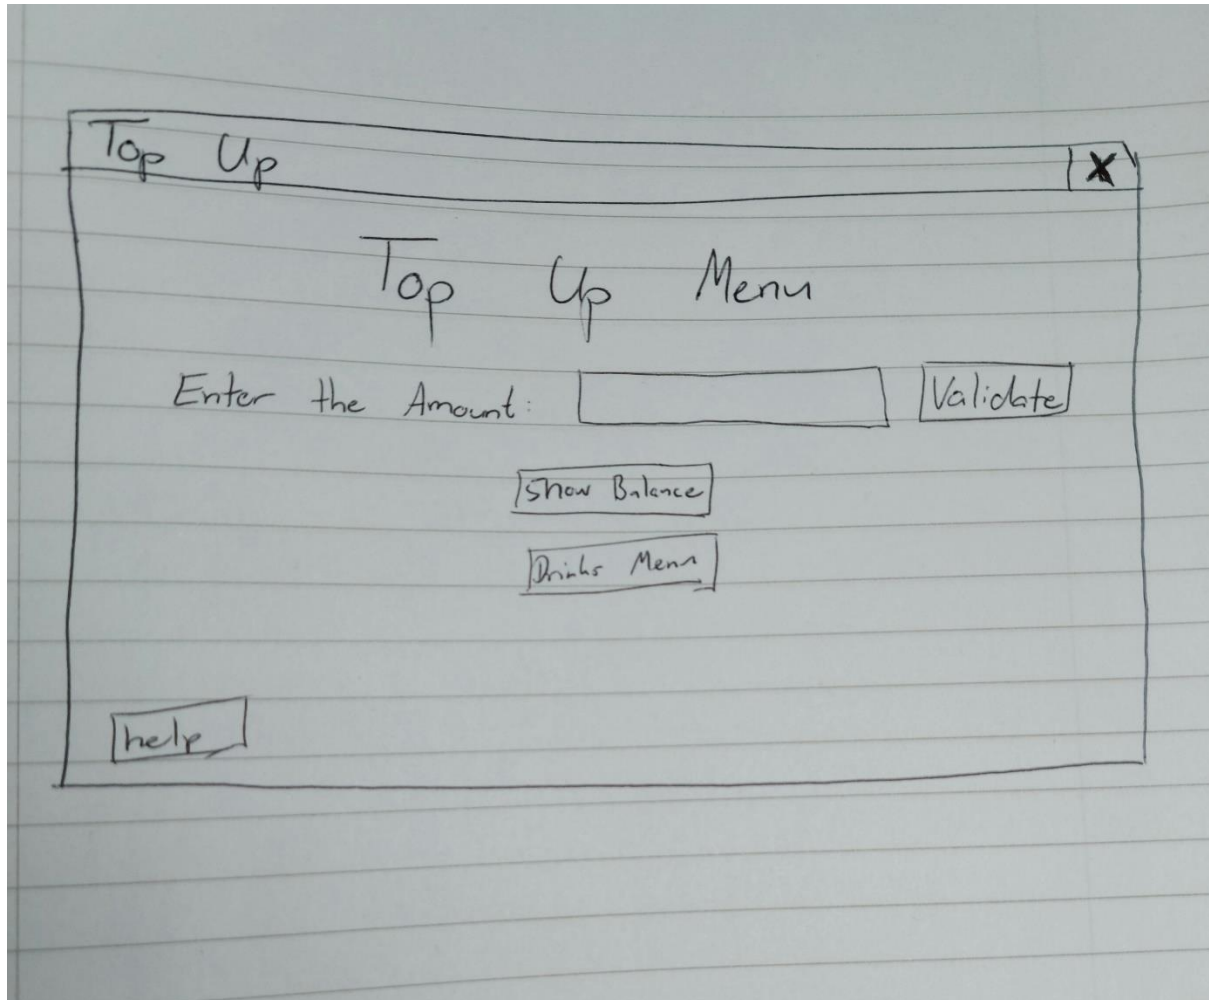 Top Up X
Top Up Menu
Enter the Amount: Validate
Show Balance
Drinks Menu
help